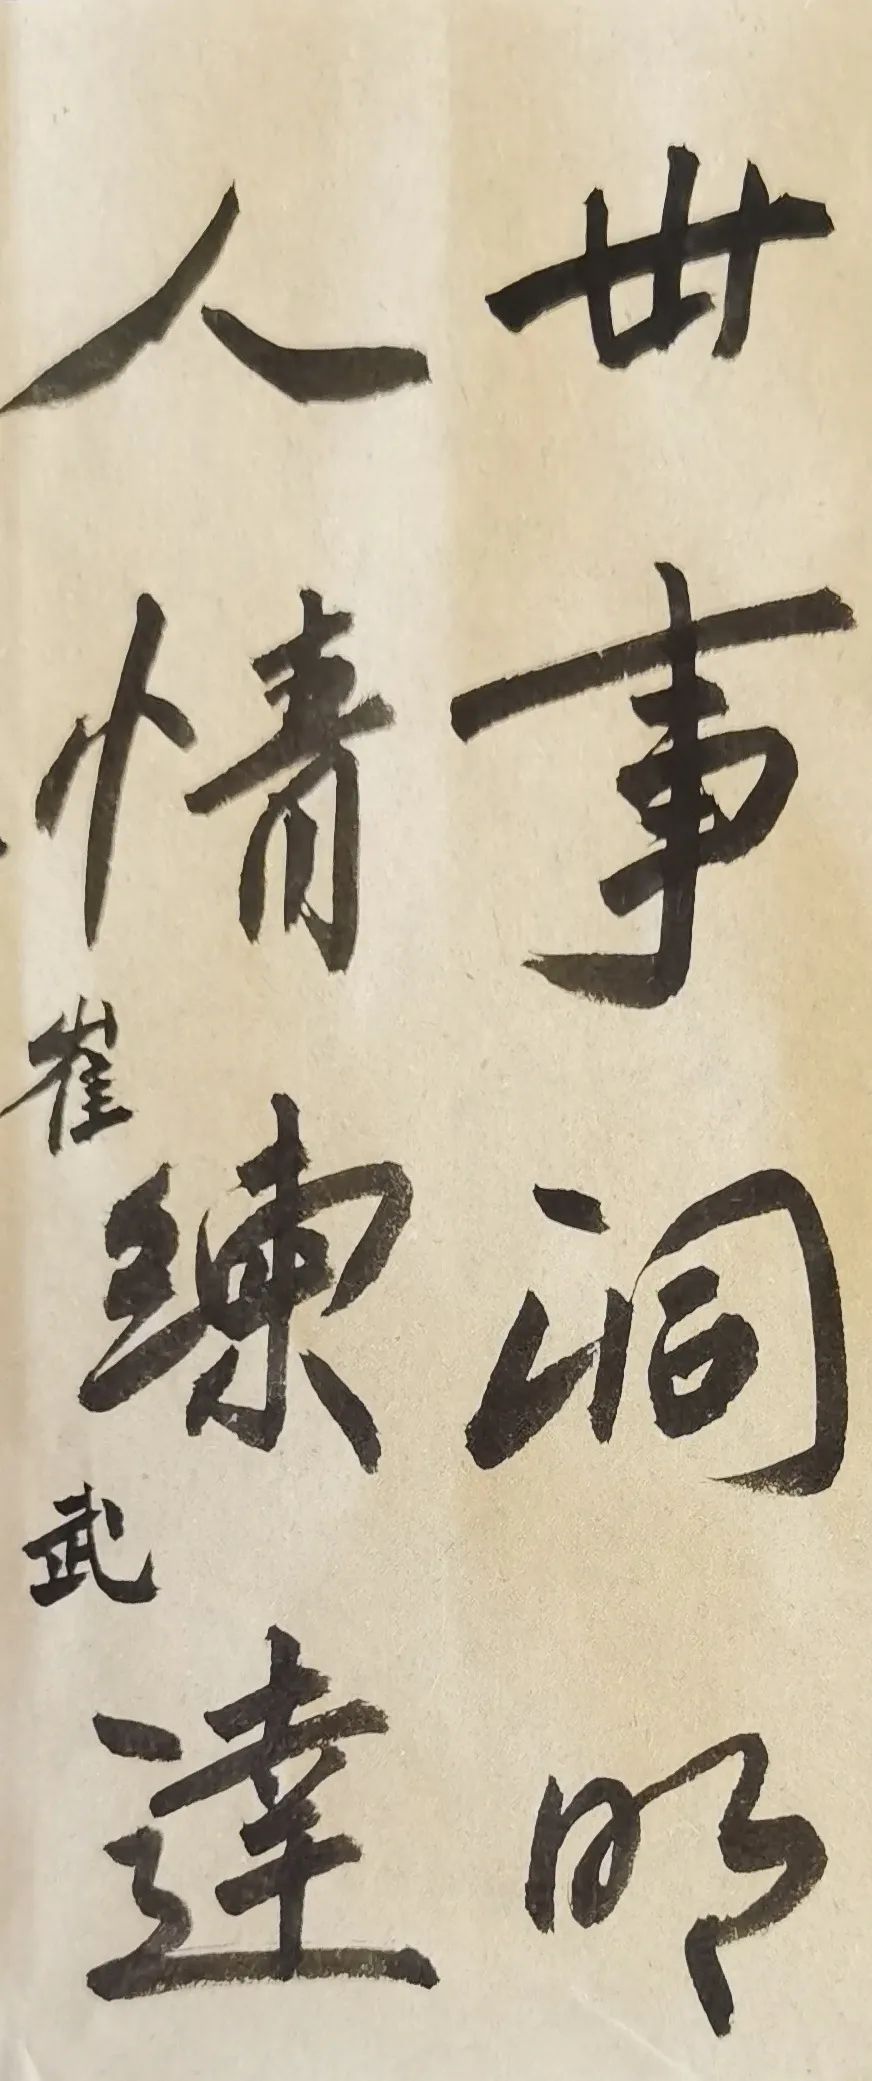 世事洞明
人情練達
崔武